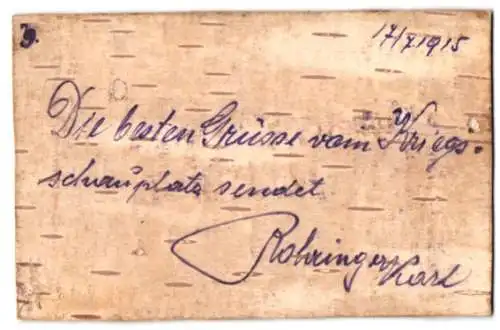 17/7 1915
Die besten Grüsse vom Kriegs-
schauplatz sendet
Robringer Karl